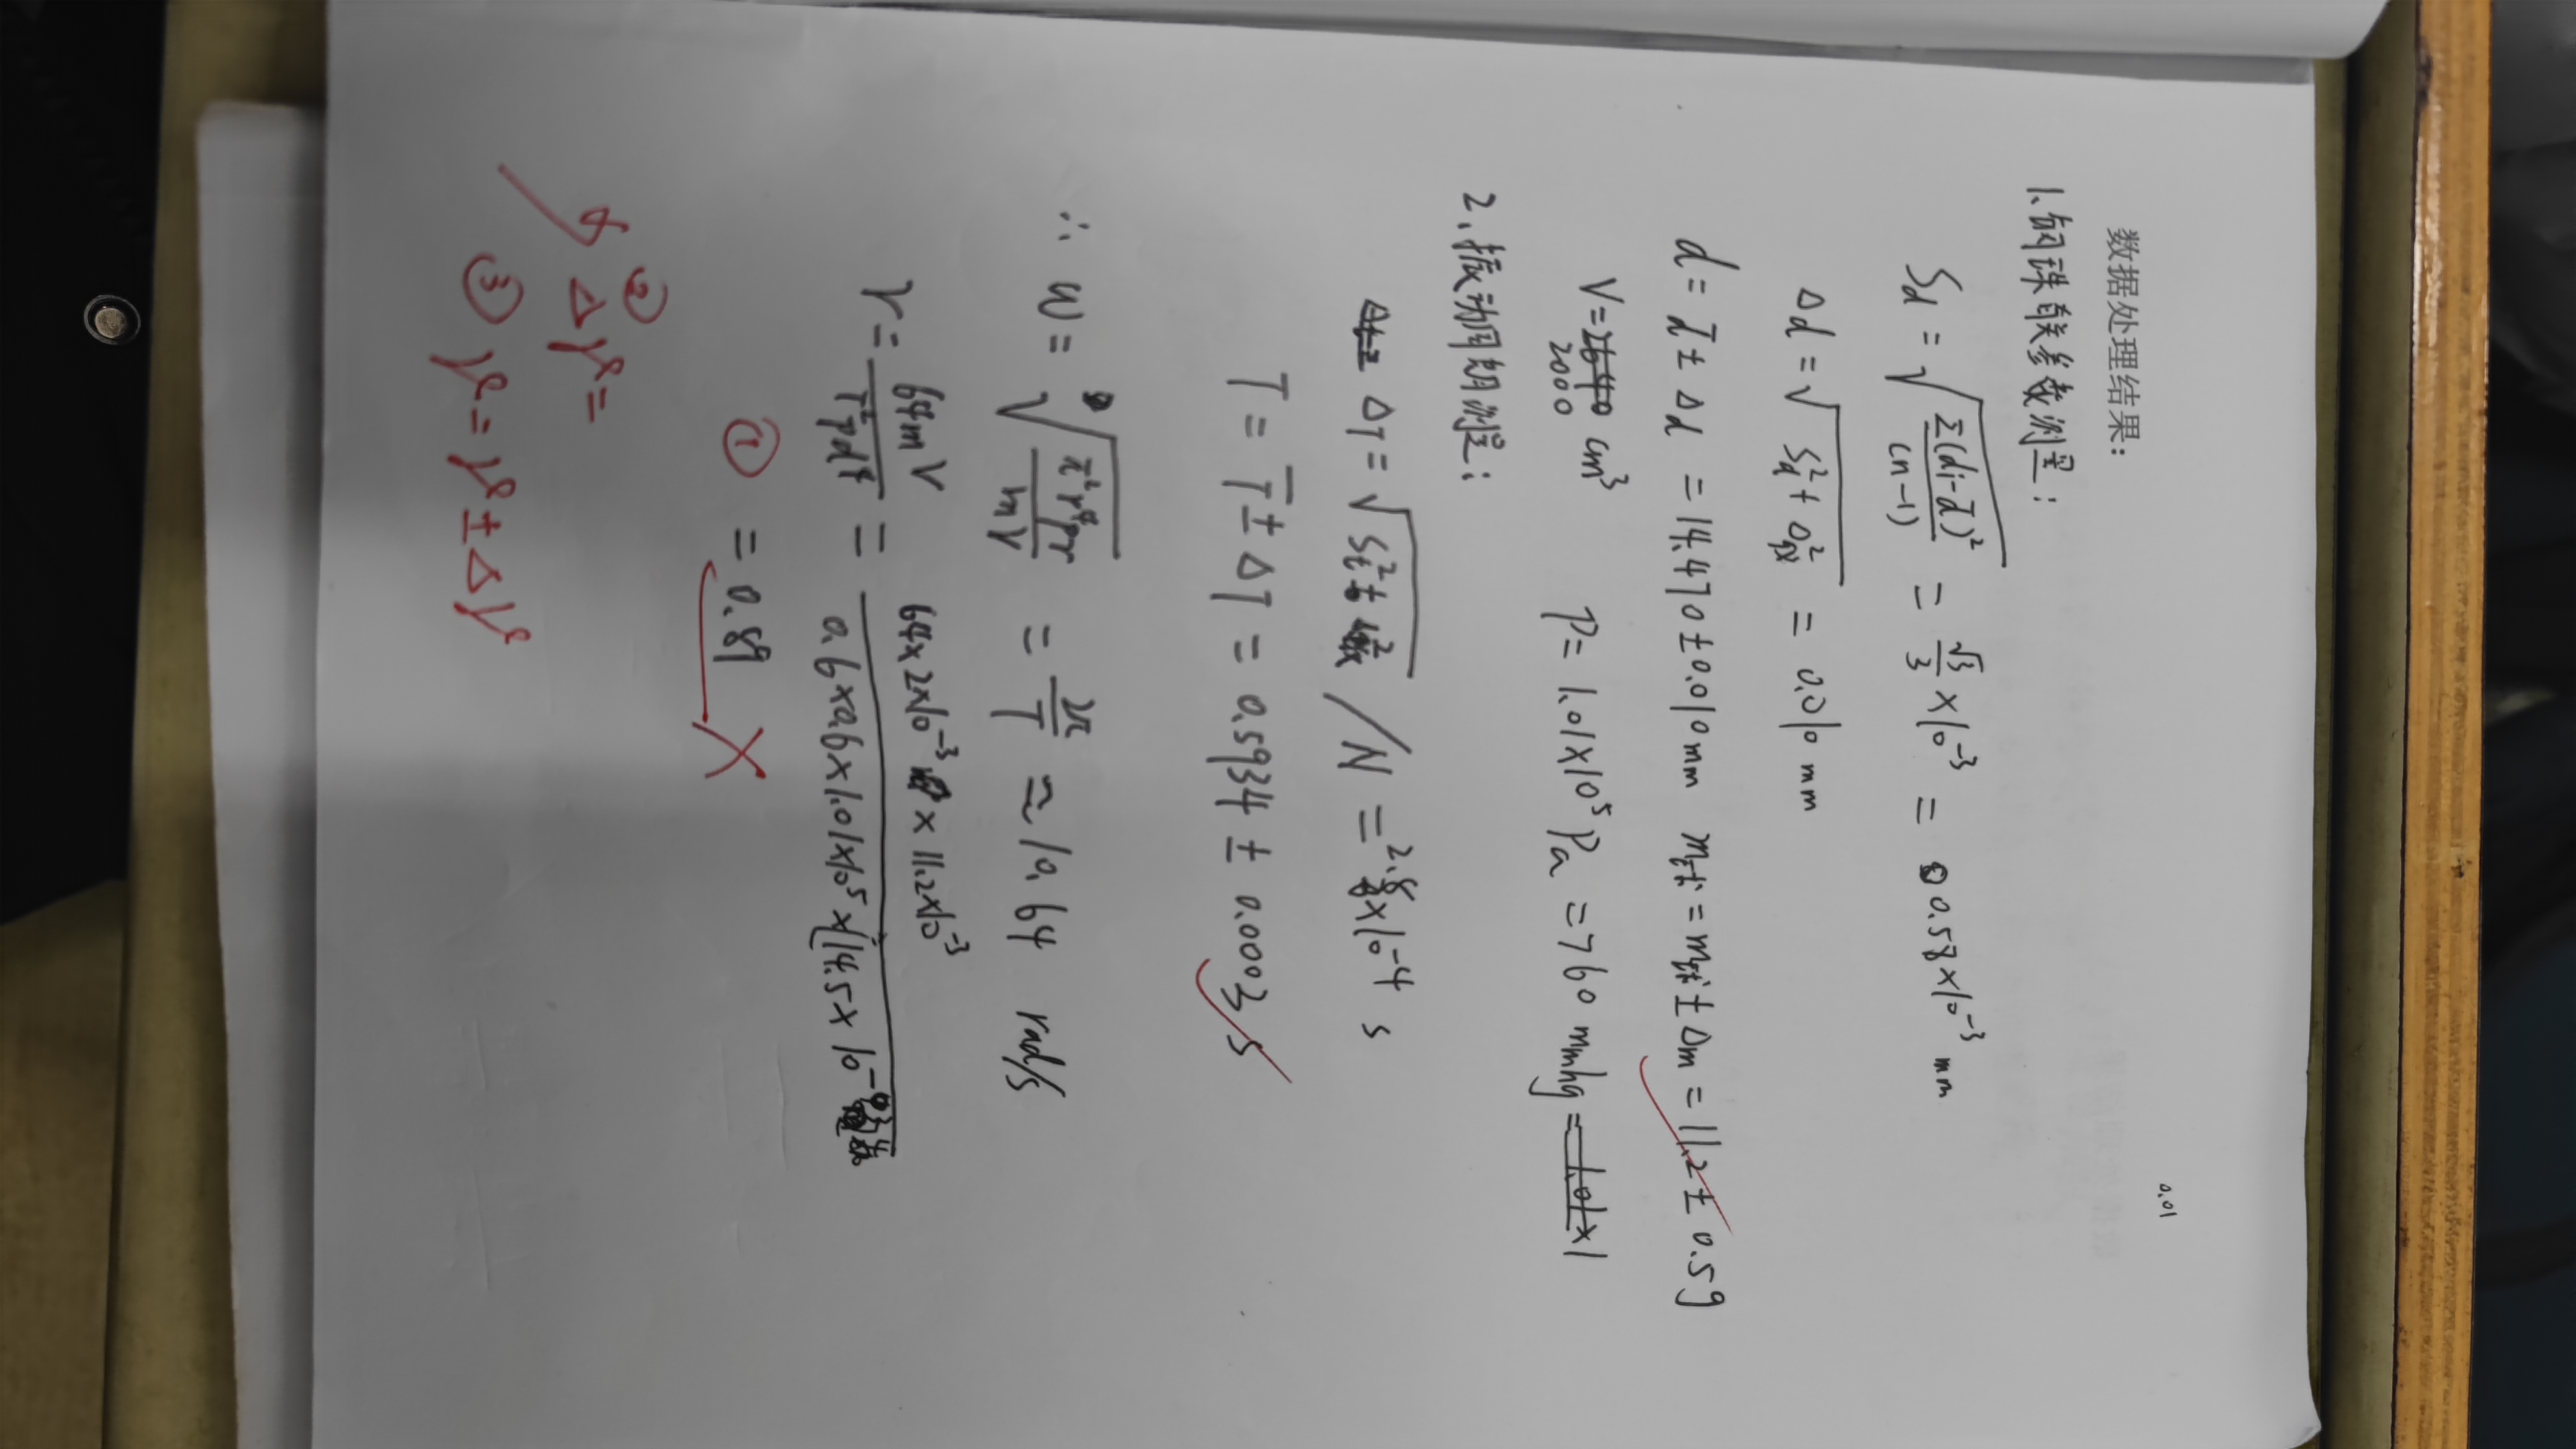 0.01
数据处理结果:
1.钢珠有关参数测量:
Sd = √(Σ(di-d̄)²/(n-1)) = √3/3 ×10⁻³ = 0.58×10⁻³ mm
Δd = √(Sd²+Δ仪²) = 0.010 mm
d = d̄ ± Δd = 14.470±0.010mm m球 = m球 ± Δm = 11.2 ± 0.5g
V= 2000 cm³ P= 1.01×10⁵ Pa = 760 mmhg
2.振动周期测量:
ΔT = √(St²+Δ仪²) /N = 2.8×10⁻⁴ s
T = T̄ ± ΔT = 0.5934 ± 0.0003 s
∴ ω = √(π²r⁴Pγ/mV) = 2π/T ≈ 10.64 rad/s
γ = 64mV/T²Pd⁴ = 64×2×10⁻³×11.2×10⁻³/0.6×0.6×1.01×10⁵×(14.5×10⁻³
① = 0.89 ×
② Δγ=
③ γ = γ ± Δγ